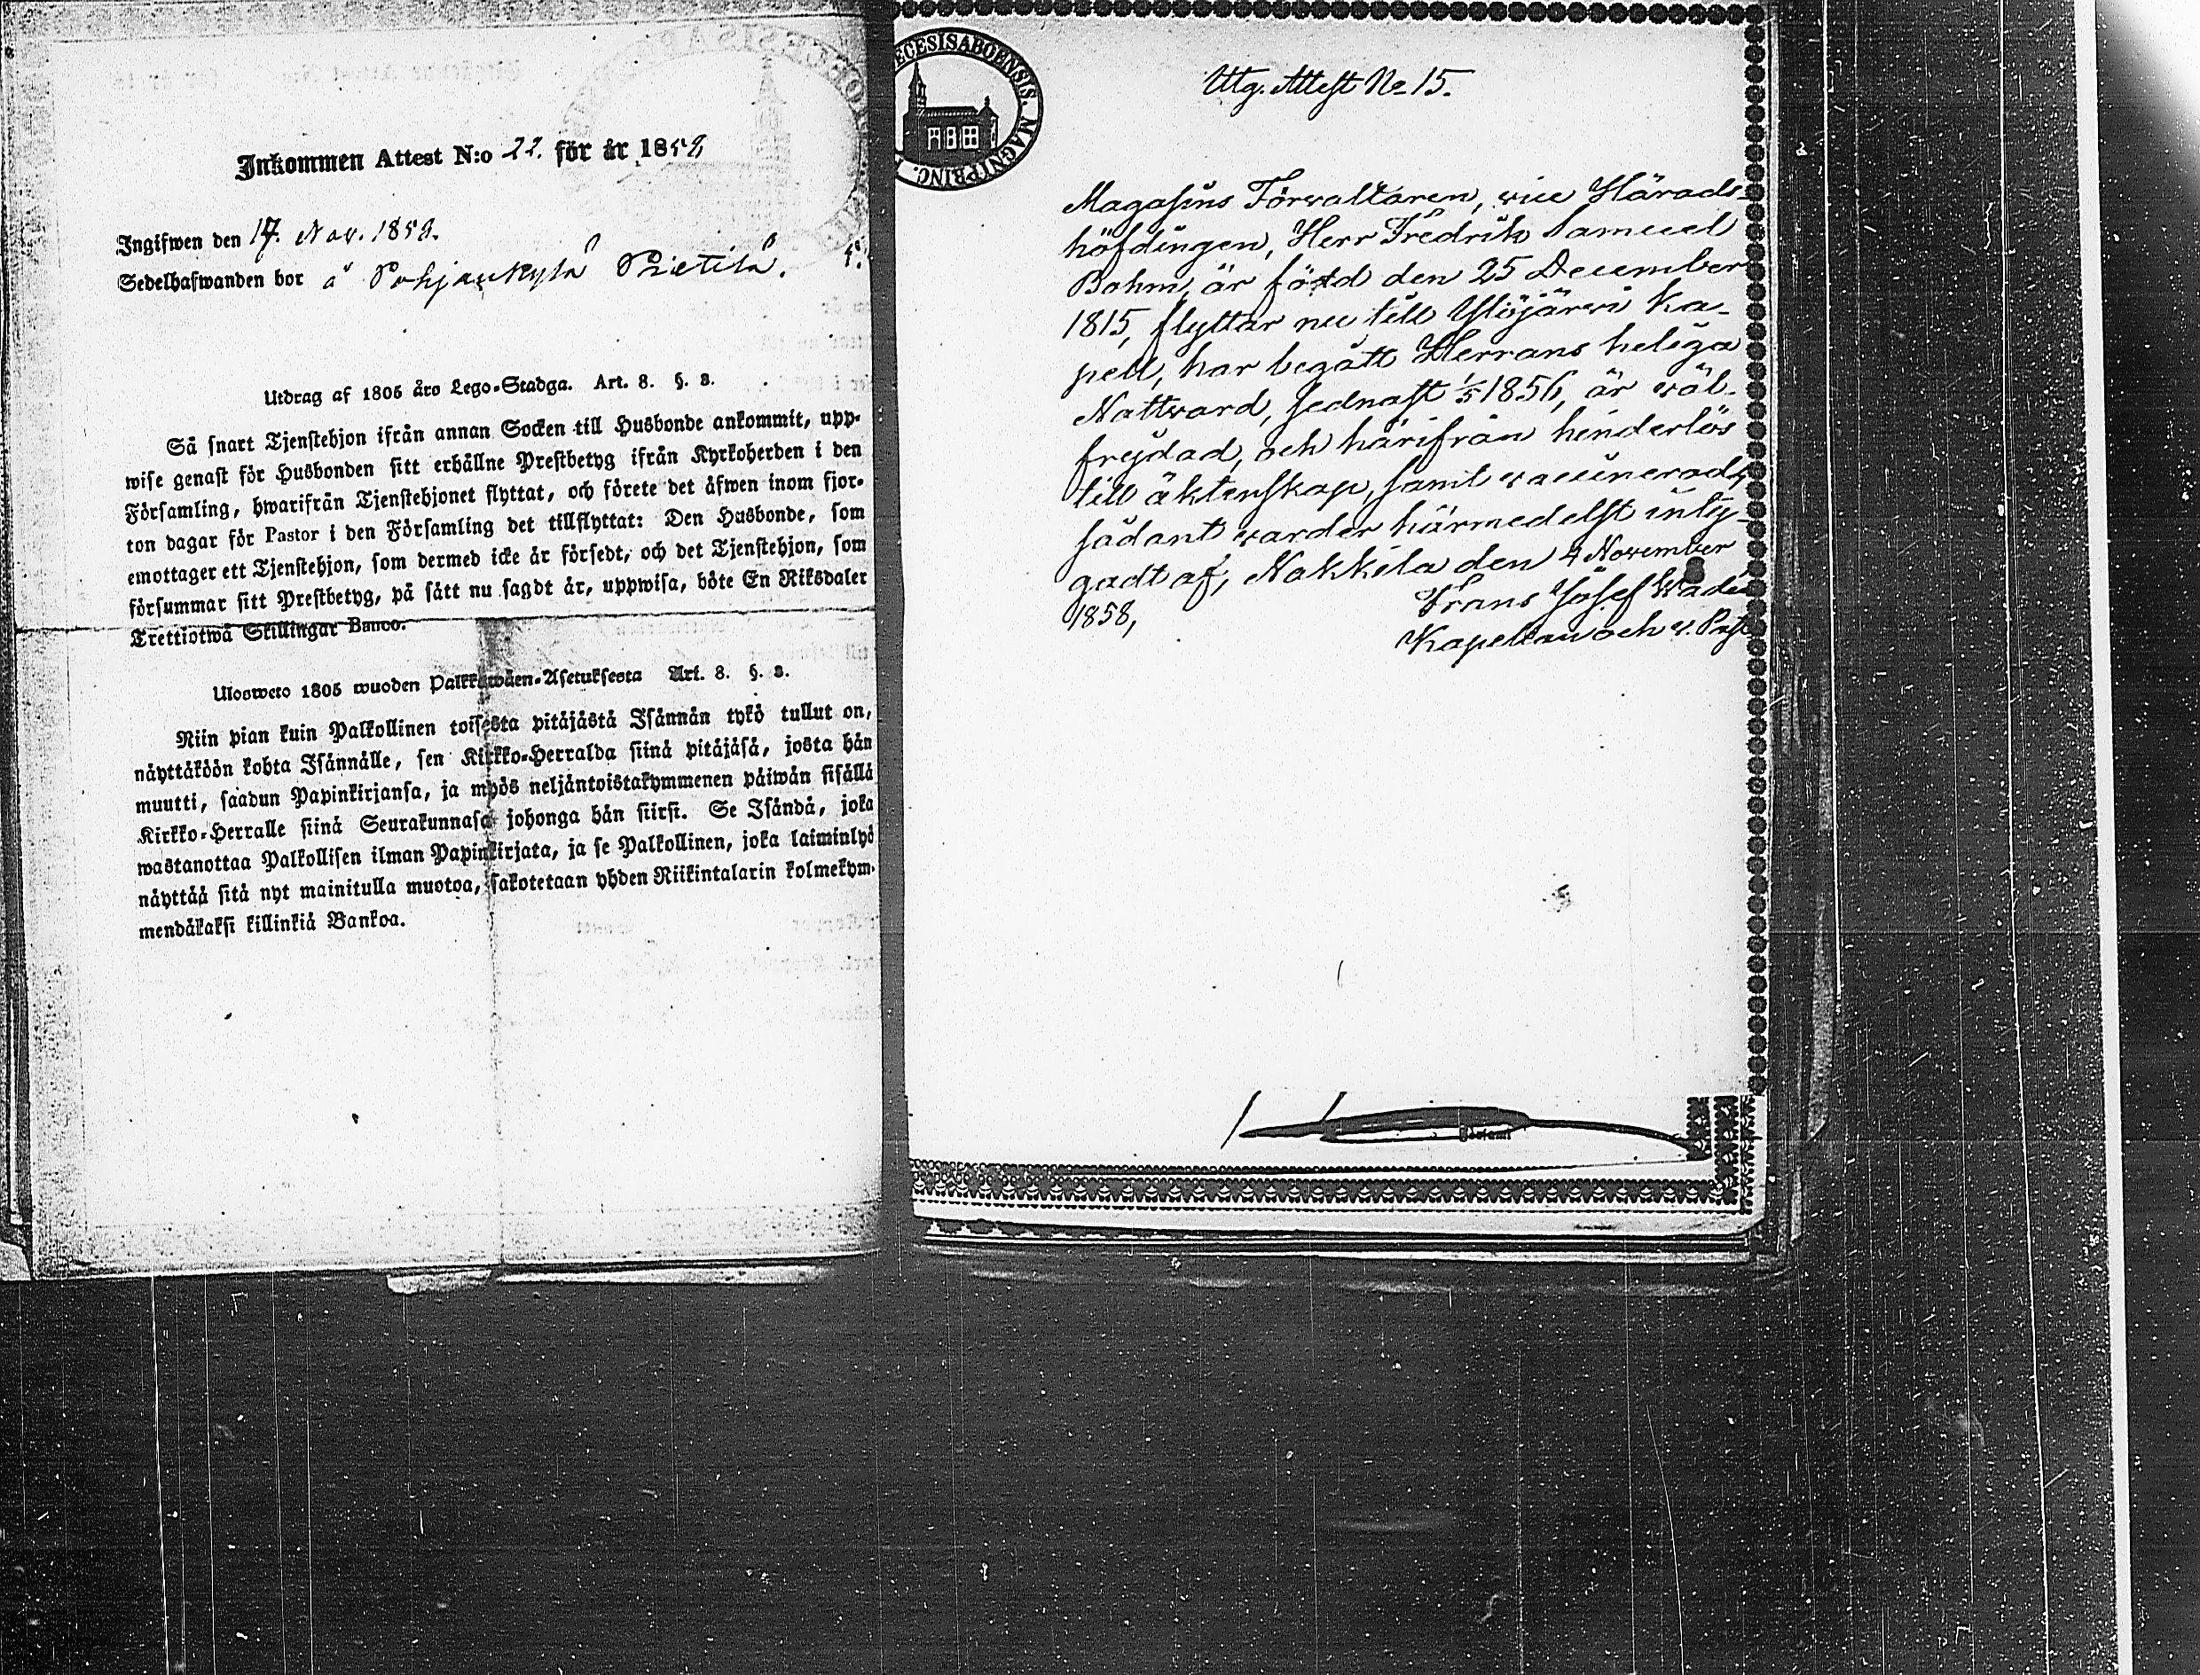 Inkommen Attest N:o 22. för år 1858
Ingifwen den 17. Nov. 1858.
Sedelhafwanden bor å Pohjankylä Pietilä.
Utdrag af 1805 års Lego-Stadga. Art. 8. §. 3.
Så snart Tjenstehjon ifrån annan Socken till Husbonde ankommit, upp-
wise genast för Husbonden sitt erhållne Prestbetyg ifrån Kyrkoherden i den
Församling, hwarifrån Tjenstehjonet flyttat, och förete det äfwen inom fjor-
ton dagar för Pastor i den Församling det tillflyttat: Den Husbonde, som
emottager ett Tjenstehjon, som dermed icke är försedt, och det Tjenstehjon, som
försummar sitt Prestbetyg, på sätt nu sagdt är, uppwisa, böte En Riksdaler
Trettiotwå Skillingar Banco.
Ulosweto 1805 wuoden Palkkawäen-Asetuksesta Art. 8. §. 3.
Niin pian kuin Palkollinen toisesta pitäjästä Isännän tykö tullut on,
näyttäköön kohta Isännälle, sen Kirkko-Herralda siinä pitäjäsä, josta hän
muutti, saadun Papinkirjansa, ja myös neljäntoistakymmenen päiwän sisällä
Kirkko-Herralle siinä Seurakunnasa johonga hän siirsi. Se Isändä, joka
wastanottaa Palkollisen ilman Papinkirjata, ja se Palkollinen, joka laiminlyö
näyttää sitä nyt mainitulla muotoa, sakotetaan yhden Riikintalarin kolmekym-
mendäkaksi killinkiä Bankoa.
ECESIS ABOENSIS. MAGNI PRINC.
Utg. Attest No 15.
Magasins Förvaltaren, vice Härads-
höfdingen, Herr Fredrik Samuel
Bohm, är född den 25 December
1815, flyttar nu till Ylöjärvi Ka-
pell, har begått Herrans heliga
Nattvard, sednast 1/5 1856, är väl-
frejdad, och härifrån hinderlös
till äktenskap, samt vaccinerad,
sådant varder härmedelst inty-
gadt af, Nakkila den 4 November
1858,
Frans Josef
Kapellan och v. Past